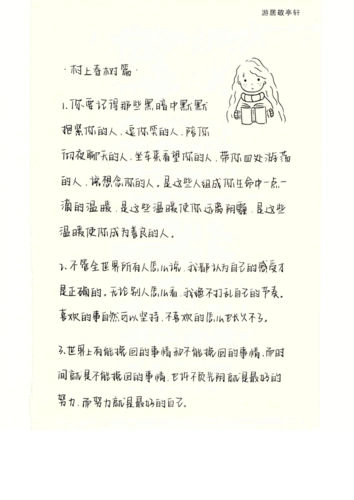 游居敬亭轩
·村上春树篇·
1.你要记得那些黑暗中默默
抱紧你的人,逗你笑的人,陪你
彻夜聊天的人,坐车来看望你的人,带你四处游荡
的人,说想念你的人。是这些人组成你生命中一点一
滴的温暖,是这些温暖使你远离阴霾,是这些
温暖使你成为善良的人。
2.不管全世界所有人怎么说,我都认为自己的感受才
是正确的。无论别人怎么看,我绝不打乱自己的节奏。
喜欢的事自然可以坚持,不喜欢的怎么也长久不了。
3.世界上有能挽回的事情和不能挽回的事情,而时
间就是不能挽回的事情,也许不负光阴就是最好的
努力,而努力就是最好的自己。